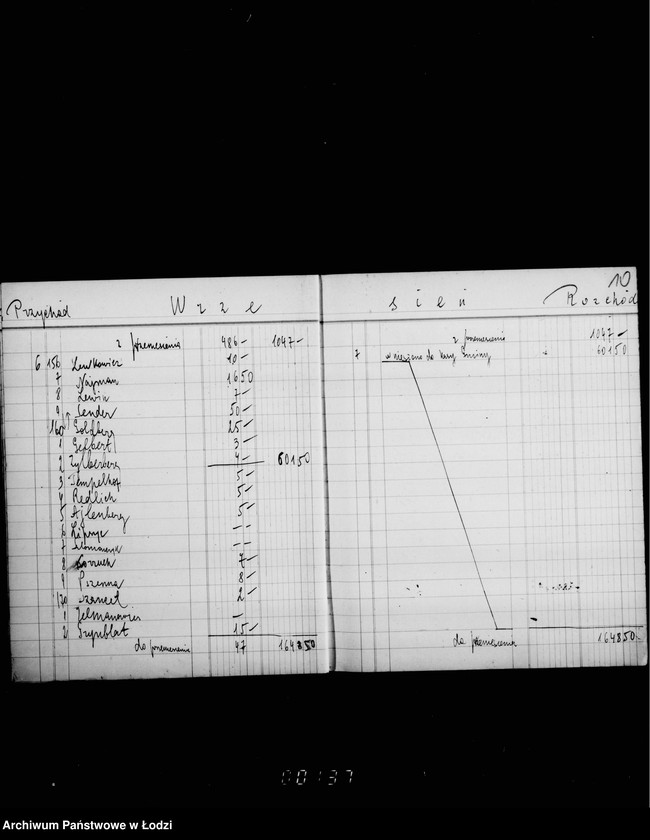 10
Przychód Wrze
z przeniesienia 486 — 1047 —
6 156 Lewkowicz 10 —
7 Najman 16 50
8 Lewin 7 —
9 Sender 50 —
160 Goldberg 25 —
1 Gelbart 3 —
2 Zylberberg 4 — 601 50
3 Tempelhof 5 —
4 Redlich 5 —
5 Ajlenberg 5 —
6 — —
7 — —
8 7 —
9 Pszenna 8 —
170 2 —
1 —
2 Sznblat 15 —
do przeniesienia 47 1648 50
sień Rozchód
z przeniesienia 1047 —
7 wniesiono do kasy Gminy 601 50
do przeniesienia 1648 50
00137
Archiwum Państwowe w Łodzi